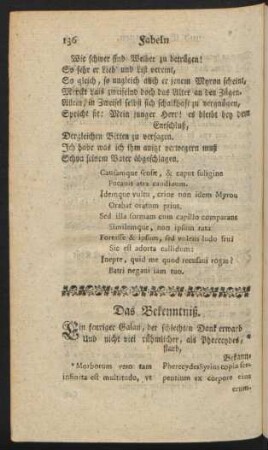 136 Fabeln
Wie schwer sind Weiber zu betrügen!
So sehr er Lieb' und List vereint,
So gleich, so ungleich auch er jenem Myron scheint,
Merckt Lais zweifelnd doch das Alter an den Zügen.
Allein, in Zweifel selbst sich schalkhaft zu vergnügen,
Spricht sie: Mein junger Herr! es bleibt bey dem
Entschluß,
Dergleichen Bitten zu versagen.
Ich habe was ich ihm anitzt verwegern muß
Schon seinem Vater abgeschlagen.
Canitiemque suam, & caput fuligine
Fucavit atra candidum.
Idemque vultu, crine non idem Myron
Orabat oratam prius.
Sed illa formam cum capillo comparans
Similemque, non ipsum rata
Fortasse & ipsum, sed volens ludo frui
Sic est adorta callidum:
Inepte, quid me quod recusavi rogas?
Patri negavi jam tuo.
Das Bekenntniß.
Ein feuriger Galan, der schlechten Danck erwarb
Und nicht viel rühmlicher, als Pherecydes, *
starb,
Bekann-
* Morborum vero tam infinita est multitudo, vt
Pherecydes Syrius copia serpentium ex corpore eius
erum-